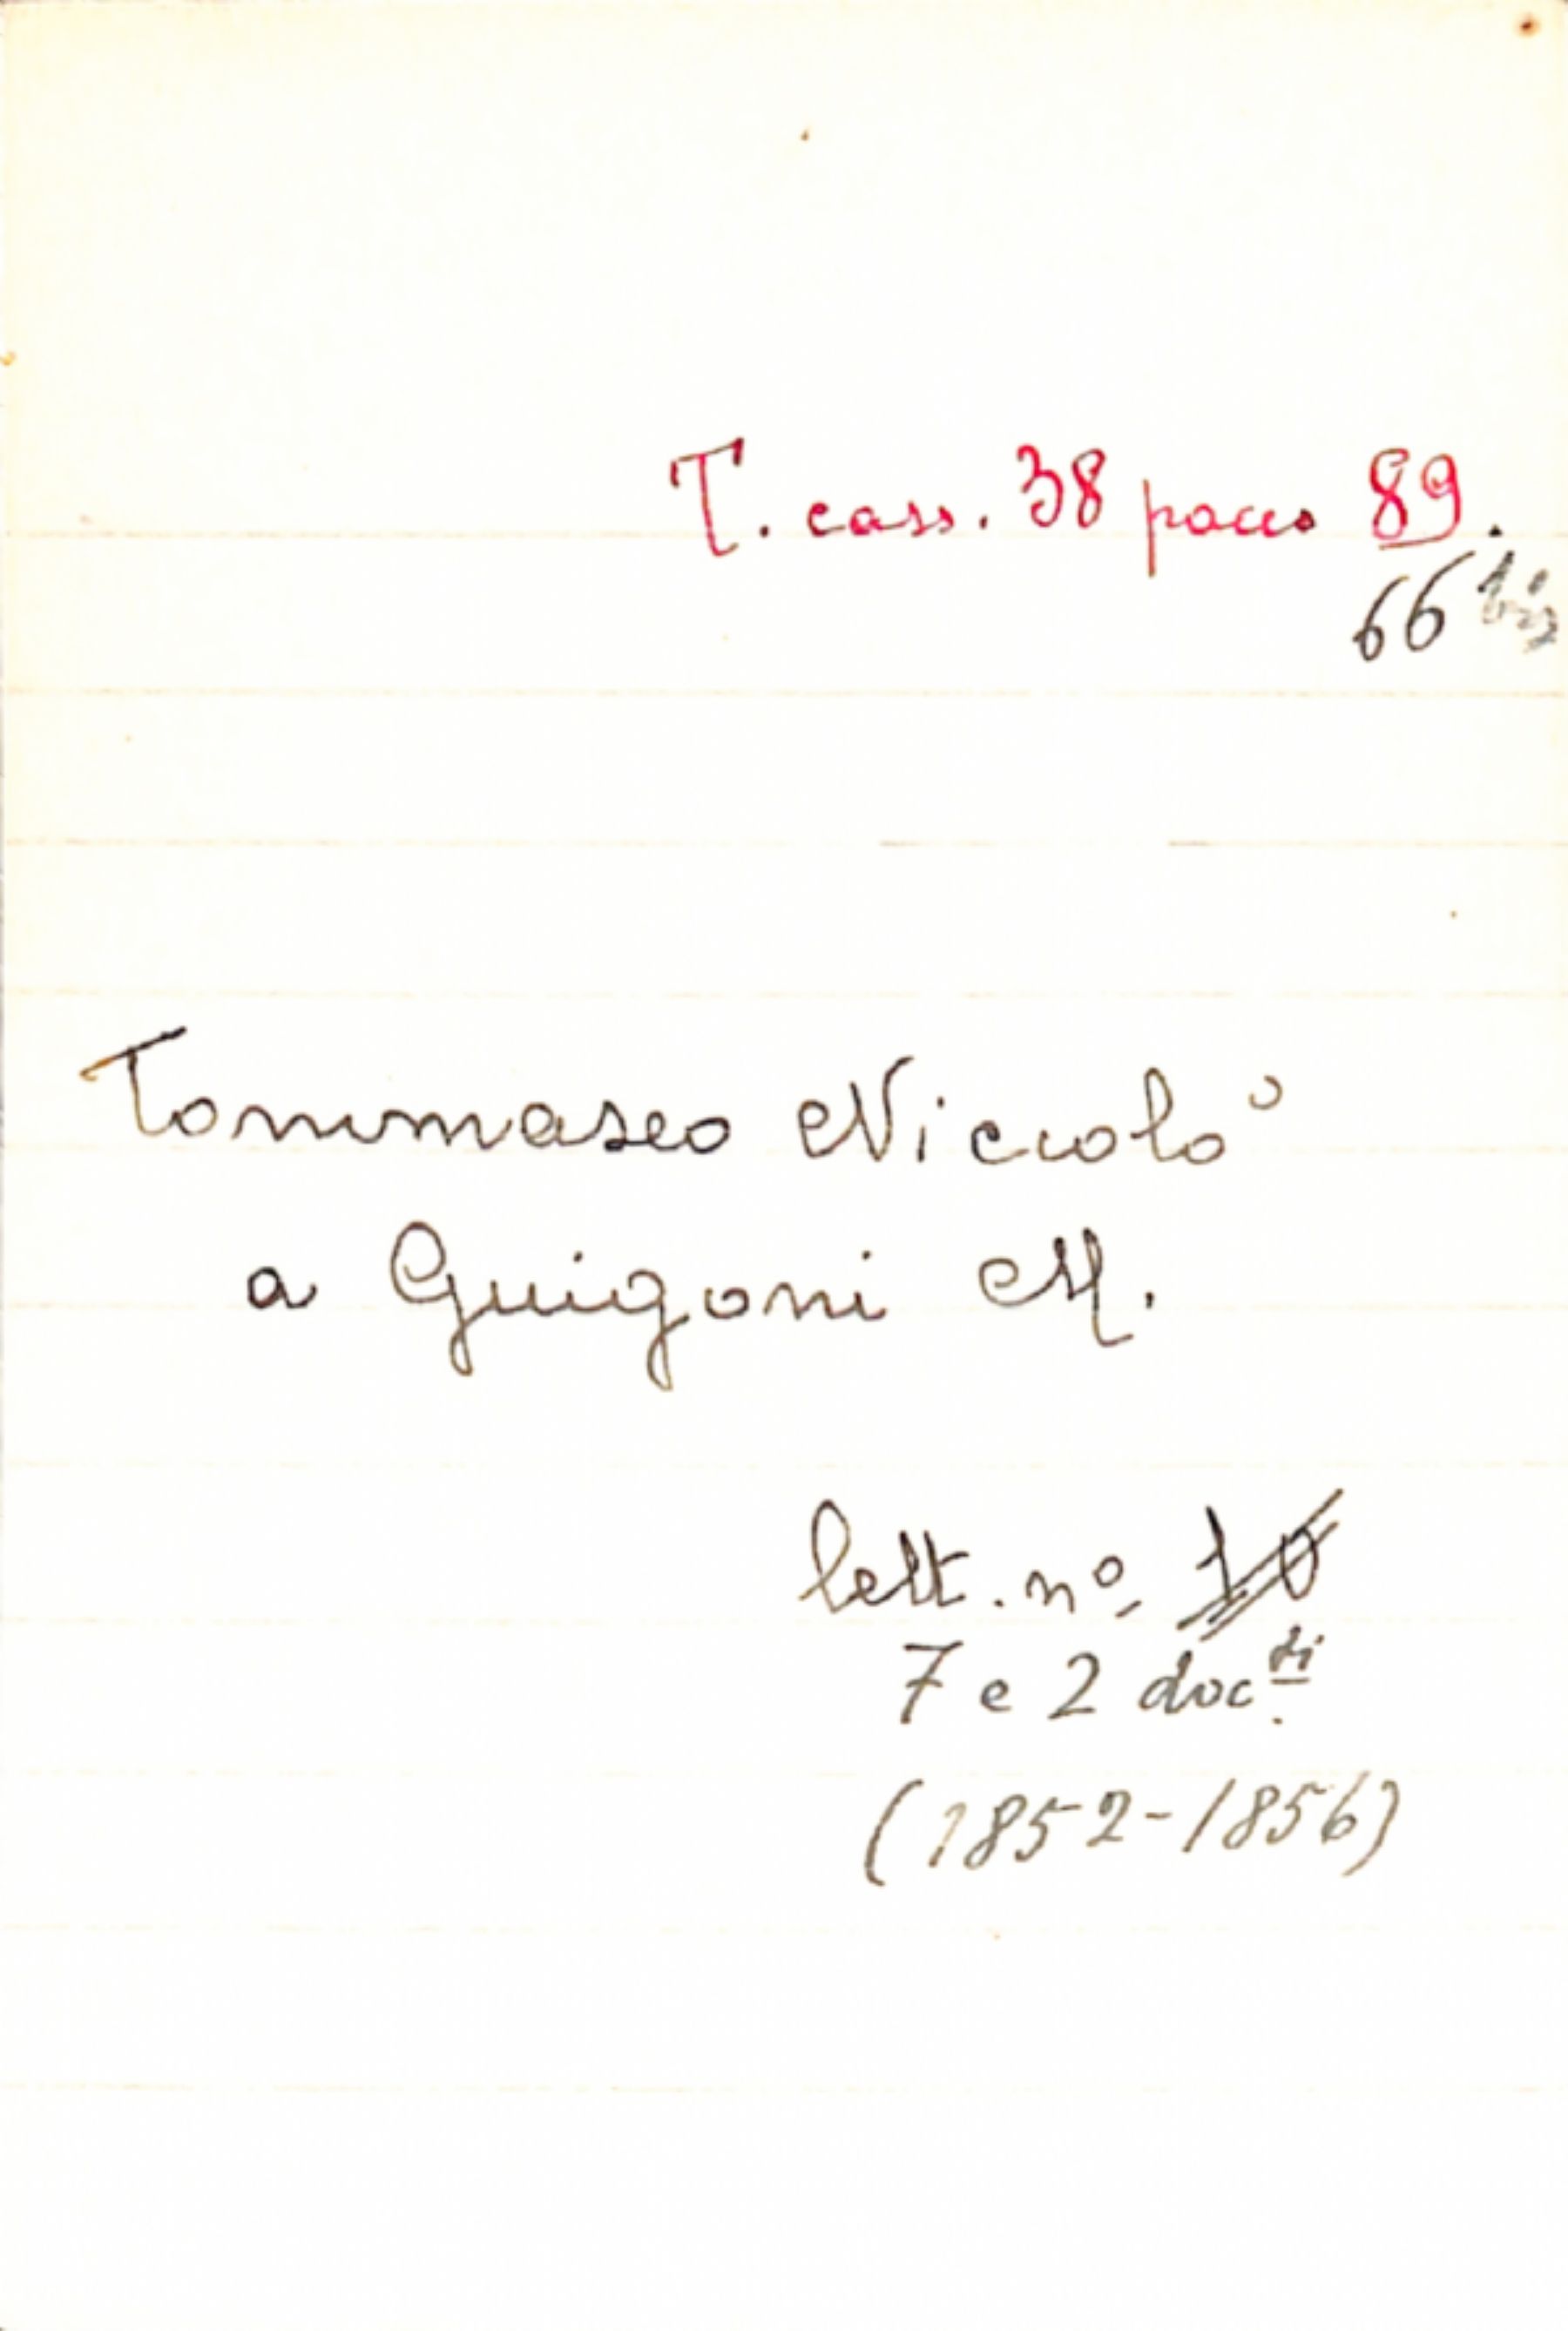 T. cass. 38 pacco 89.
66 bis
Tommaseo Niccolò
a Guigoni M.
lett. nº 10
7 e 2 docti.
(1852-1856)